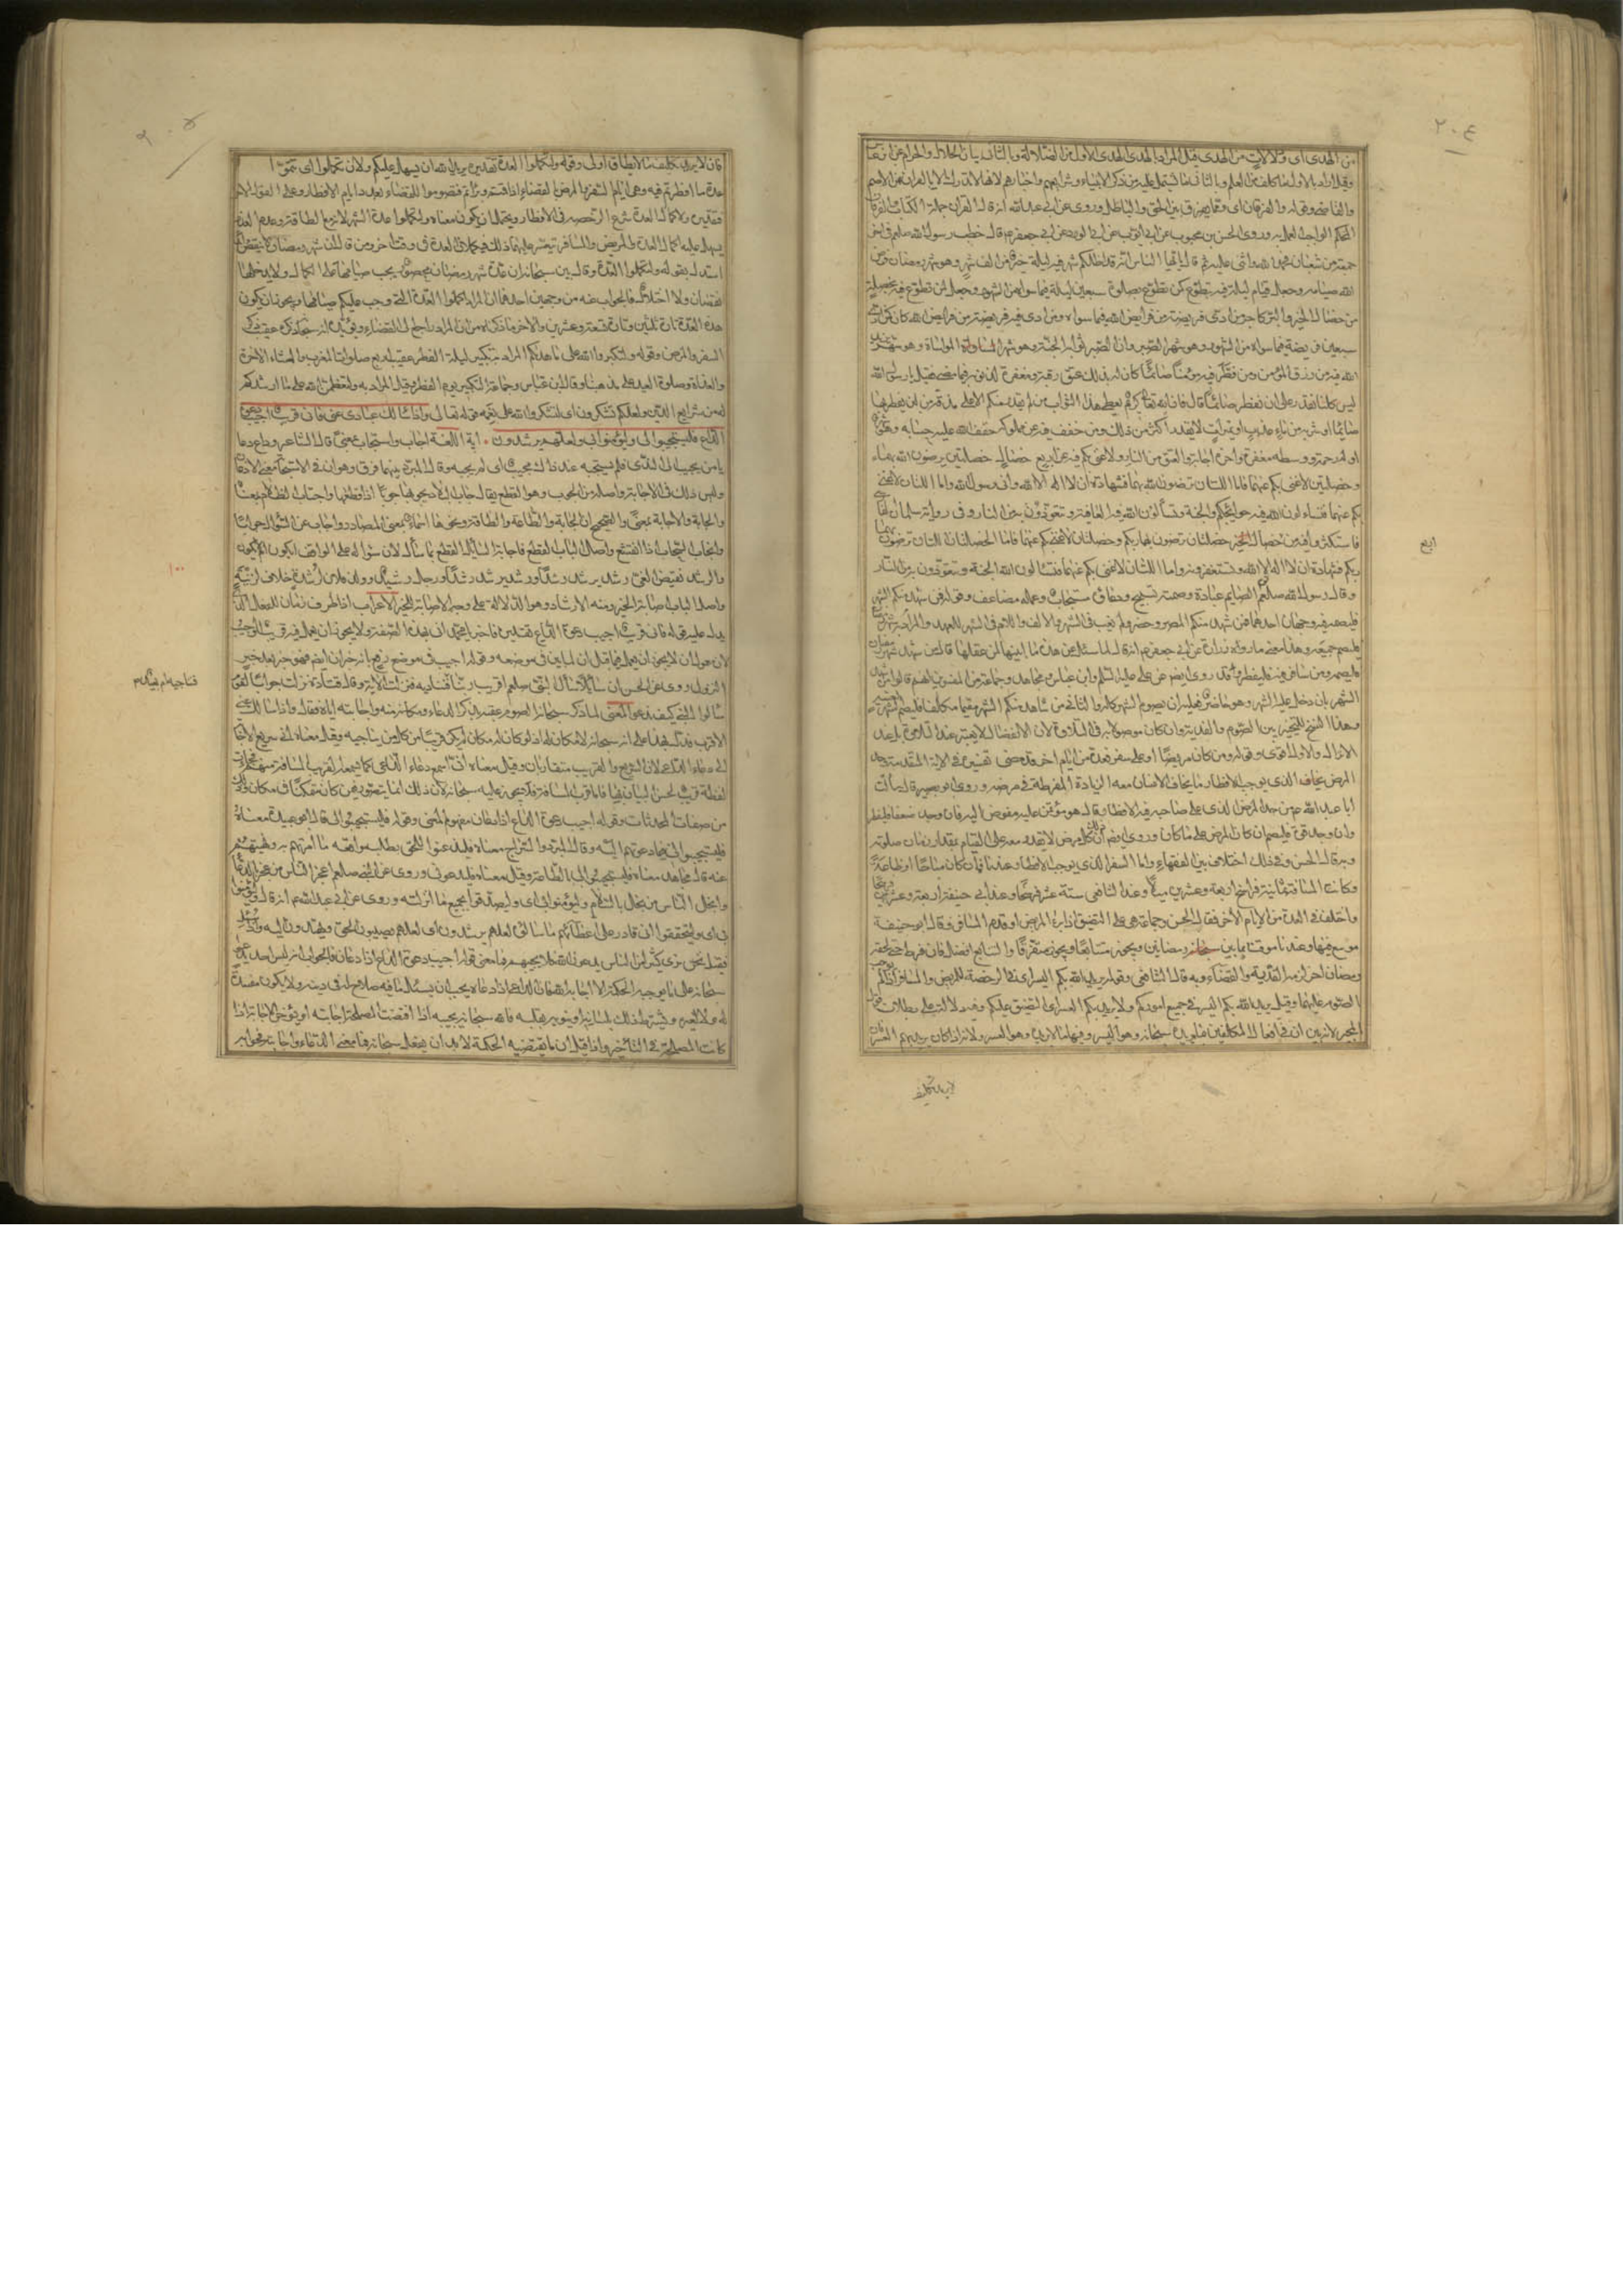 ٢٠٤
من الهدى اى ودلالات من الهدى وقيل المراد بالهدى الاول من الضلالة وبالثانى بيان الحلال والحرام عن ابن عباس
وقيل اراد بالاول ما كلف من العلم وبالثانى ما يشتمل عليه من ذكر الانبياء وشرايعهم واخبارهم لانها لا تدرك الا بالقران عن الاصم
والقاضى وقوله والفرقان اى ومما يفرق بين الحق والباطل وروى عن ابى عبد الله انه قال القران جملة الكتاب والفرقان
المحكم الواجب العمل به وروى الحسن بن محبوب عن ابى ايوب عن ابى الورد عن ابى جعفر ع قال خطب رسول الله صلعم فى اخر
جمعة من شعبان فحمد الله واثنى عليه ثم قال يا ايها الناس انه قد اظلكم شهر فيه ليلة خير من الف شهر وهو شهر رمضان فرض
الله صيامه وجعل قيام ليلة فيه بتطوع كمن تطوع بصلوة سبعين ليلة فيما سواه من الشهور وجعل لمن تطوع فيه بخصلة
من خصال الخير والبر كاجر من ادى فريضة من فرايض الله فيما سواه ومن ادى فيه فريضة من فرايض الله كان كمن ادى
سبعين فريضة فيما سواه من الشهور وهو شهر الصبر وان الصبر ثوابه الجنة وهو شهر المواساة وهو شهر يزيد
الله فيه من رزق المؤمن ومن فطر فيه مؤمنا صائما كان له بذلك عتق رقبة ومغفرة لذنوبه فيما مضى فقيل يا رسول الله
ليس كلنا نقدر على ان نفطر صائما قال فان الله تعالى كريم يعطى هذا الثواب من لم يقدر منكم الا على مذقة من لبن يفطر بها
صائما او شربة من ماء عذب او تمرات لا يقدر اكثر من ذلك ومن خفف فيه عن مملوكه خفف الله عليه حسابه وهو شهر
اوله رحمة ووسطه مغفرة واخره اجابة والعتق من النار ولا غنى بكم فيه عن اربع خصال خصلتين ترضون الله بهما
وخصلتين لا غنى بكم عنهما فاما اللتان ترضون الله بهما فشهادة ان لا اله الا الله وانى رسول الله واما اللتان لا غنى
بكم عنهما فتسالون الله فيه حوائجكم والجنة وتسالون الله فيه العافية وتعوذون به من النار وفى رواية سلمان الفارسى
فاستكثروا فيه من خصال الخير خصلتان ترضون بهما ربكم وخصلتان لا غنى بكم عنهما فاما الخصلتان اللتان ترضون بهما
اربع
ربكم فشهادة ان لا اله الا الله وتستغفرونه واما اللتان لا غنى بكم عنهما فتسالون الله الجنة وتعوذون به من النار
وقال رسول الله صلعم نوم الصايم عبادة وصمته تسبيح ودعاؤه مستجاب وعمله مضاعف وقوله فمن شهد منكم الشهر
فليصمه فيه وجهان احدهما فمن شهد منكم المصر وحضر ولم يغب فى الشهر والالف واللام فى الشهر للعهد والمراد به شهر رمضان
فليصم جميعه وهذا معنى ما رواه زرارة عن ابى جعفر ع انه قال لما سئل عن هذه ما ابينها لمن عقلها قال من شهد شهر رمضان
فليصمه ومن سافر فيه فليفطر وقد روى ايضا عن على عليه السلم وابن عباس ومجاهد وجماعة من المفسرين انهم قالوا من شهد
الشهر بان دخل عليه الشهر وهو حاضر فعليه ان يصوم الشهر كله والثانى من شاهد منكم الشهر مقيما مكلفا فليصم الشهر بعينه
وهذا النسخ للتخيير بين الصوم والفدية وان كان موصولا به فى التلاوة لان الانفصال لا يعتبر عند التلاوة بل عند
الانزال والاول اقوى وقوله ومن كان مريضا او على سفر فعدة من ايام اخر قد مضى تفسيره فى الاية المتقدمة وحد
المرض الذى يوجب الافطار ما يخاف الانسان معه الزيادة المفرطة فى مرضه وروى ابو بصير قال سالت
ابا عبد الله ع عن حد المرض الذى على صاحبه فيه الافطار قال هو مؤتمن عليه مفوض اليه فان وجد ضعفا فليفطر
وان وجد قوة فليصم كان المرض على ما كان وروى ايضا ان ذلك كل مرض لا يقدر معه على القيام بمقدار زمان صلوته
وبه قال الحسن وفى ذلك اختلاف بين الفقهاء واما السفر الذى يوجب الافطار عندنا فما كان مباحا او طاعة
وكانت المسافة ثمانية فراسخ اربعة وعشرين ميلا وعند الشافعى ستة عشر فرسخا وعند ابى حنيفة اربعة وعشرين فرسخا
واختلف فى العدة من الايام الاخر فقال الحسن وجماعة هى على التضيق اذا برا المريض او قدم المسافر وقال ابو حنيفة
موسع فيها وعندنا موقت بما بين رمضانين ويجوز متتابعا ويجوز متفرقا والتتابع افضل فان فرط حتى لحقه
رمضان اخر لزمه الفدية والقضاء وبه قال الشافعى وقوله يريد الله بكم اليسر اى فى الرخصة للمريض والمسافر اذ لم يوجب
الصوم عليهما وقيل يريد الله بكم اليسر فى جميع اموركم ولا يريد بكم العسر اى التضيق عليكم وفيه دلالة على بطلان قول
المجبرة لانه بين ان فى افعال المكلفين ما يريده سبحانه وهو اليسر وفيها ما لا يريده وهو العسر ولانه اذا كان لا يريد بهم العسر
لا يريد تكليف
فان لا يريد تكليف ما لا يطاق اولى وقوله ولتكملوا العدة تقديره يريد الله ان يسهل عليكم ولان تكملوا اى تتموا
عدة ما افطرتم فيه وهى ايام السفر والمرض بالقضاء اذا اقمتم وبراتم فصوموا للقضاء بعدد ايام الافطار وعلى القول الاخر
فتقديره لاكمال العدة شرع الرخصة فى الافطار ويحتمل ان يكون معناه ولتكملوا عدة الشهر لانه مع الطاقة وعدم العذر
يسهل عليه اكمال العدة والمريض والمسافر يتعسر عليهما ذلك فيكملان العدة فى وقت اخر ومن قال ان شهر رمضان لا ينقص ابدا
استدل بقوله ولتكملوا العدة وقال بين سبحانه ان عدة شهر رمضان محصورة يجب صيامها على الكمال ولا يدخلها
نقصان ولا اختلال فالجواب عنه من وجهين احدهما ان المراد اكملوا العدة التى وجب عليكم صيامها ويجوز ان يكون
هذه العدة تارة ثلثين وتارة تسعة وعشرين والاخر ما ذكرناه من ان المراد راجع الى القضاء ويؤيده انه سبحانه ذكره عقيب ذكر
السفر والمرض وقوله ولتكبروا الله على ما هداكم المراد به تكبير ليلة الفطر عقيب اربع صلوات المغرب والعشاء الاخرة
والغداة وصلوة العيد على مذهبنا وقال ابن عباس وجماعة التكبير يوم الفطر وقيل المراد به ولتعظموا الله على ما ارشدكم
له من شرايع الدين ولعلكم تشكرون اى لتشكروا الله على نعمه قوله تعالى واذا سالك عبادى عنى فانى قريب اجيب دعوة
الداع فليستجيبوا لى وليؤمنوا بى ولعلهم يرشدون اية اللغة اجاب واستجاب بمعنى قال الشاعر وداع دعا
يا من يجيب الى الندى فلم يستجبه عند ذاك مجيب اى لم يجبه وقال المبرد بينهما فرق وهو ان فى الاستجابة معنى الاذعان
وليس ذلك فى الاجابة واصله من الجوب وهو القطع يقال جاب البلاد يجوبها جوبا اذا قطعها واجتاب الظلام بمعناه
والجابة والاجابة بمعنى والصحيح ان الجابة والطاعة والطاقة ونحوها اسماء بمعنى المصادر واجاب عن السؤال جوابا
وانجاب السحاب اذا انقشع واصل الباب القطع فاجابة السايل القطع بما سال لان سؤاله على الوقف ايكون ام لا يكون
والرشد نقيض الغى رشد يرشد رشدا ورشد يرشد رشدا ورجل رشيد وولد فلان لرشدة خلاف لزنية
١٠٠
واصل الباب اصابة الخير ومنه الارشاد وهو الدلالة على وجه الاصابة للخير الاعراب اذا ظرف زمان للفعل الذى
يدل عليه قوله فانى قريب اجيب دعوة الداع تقديره فاخبره يا محمد انى بهذه الصفة ولا يجوز ان يعمل فيه قريب اجيب
لان معمول ان لا يجوز ان يعمل فيما قبل ان لما بين فى موضعه وقوله اجيب فى موضع رفع بانه خبر ان ايضا فهو خبر بعد خبر
النزول روى عن الحسن ان سائلا سال النبى صلعم اقريب ربنا فنناجيه ام بعيد فنناديه فنزلت الاية وقال قتادة نزلت جوابا لقوم
فنناجيه ام بعيد
سالوا النبى كيف ندعو المعنى لما ذكر سبحانه الصوم عقبه بذكر الدعاء ومكانه منه واجابته اياه فقال واذا سالك عنى
الاقرب فذلك فيه دلالة على انه سبحانه لا مكان له اذ لو كان له مكان لم يكن قريبا من كل من يناجيه وقيل معناه انى سريع الاجابة
الى دعاء الداعى لان السريع والقريب متقاربان وقيل معناه انى اسمع دعاء الداعى كما يسمعه القريب المسافة منهم فجاءت
لفظة قريب لحسن البيان بها فاما قرب المسافة فلا يجوز عليه سبحانه لان ذلك انما يتصور فيمن كان متمكنا فى مكان وذلك
من صفات المحدثات وقوله اجيب دعوة الداع اذا دعان مفهوم المعنى وقوله فليستجيبوا لى قال ابو عبيدة معناه
فليجيبونى فيما دعوتهم اليه وقال المبرد والسراج معناه فليذعنوا للحق بطلب موافقة ما امرتهم به ونهيتهم
عنه قال مجاهد معناه فليستجيبوا لى بالطاعة وقيل معناه فليدعونى وروى عن النبى صلعم اعجز الناس من عجز عن الدعاء
وابخل الناس من بخل بالسلام وليؤمنوا بى اى وليصدقوا بجميع ما انزلته وروى عن ابى عبد الله ع انه قال وليؤمنوا
بى اى وليتحققوا انى قادر على اعطائهم ما سالونى لعلهم يرشدون اى لعلهم يصيبون الحق ويهتدون اليه وسئل
فقيل نحن نرى كثيرا من الناس يدعون الله فلا يجيبهم فما معنى قوله اجيب دعوة الداع اذا دعان فالجواب انه ليس احد يدعو الله
سبحانه على ما توجبه الحكمة الا اجابه الله فان الداعى اذا دعاه يجب ان يسال ما فيه صلاح له فى دينه ولا يكون مفسدة
له ولا لغيره ويشترط ذلك بلسانه او ينويه بقلبه فالله سبحانه يجيبه اذا اقتضت المصلحة اجابته او يؤخر الاجابة اذا
كانت المصلحة فى التاخير واذا قيل ان ما يقتضيه الحكمة لا بد ان يفعله سبحانه فما معنى الدعاء واجابته فجوابه